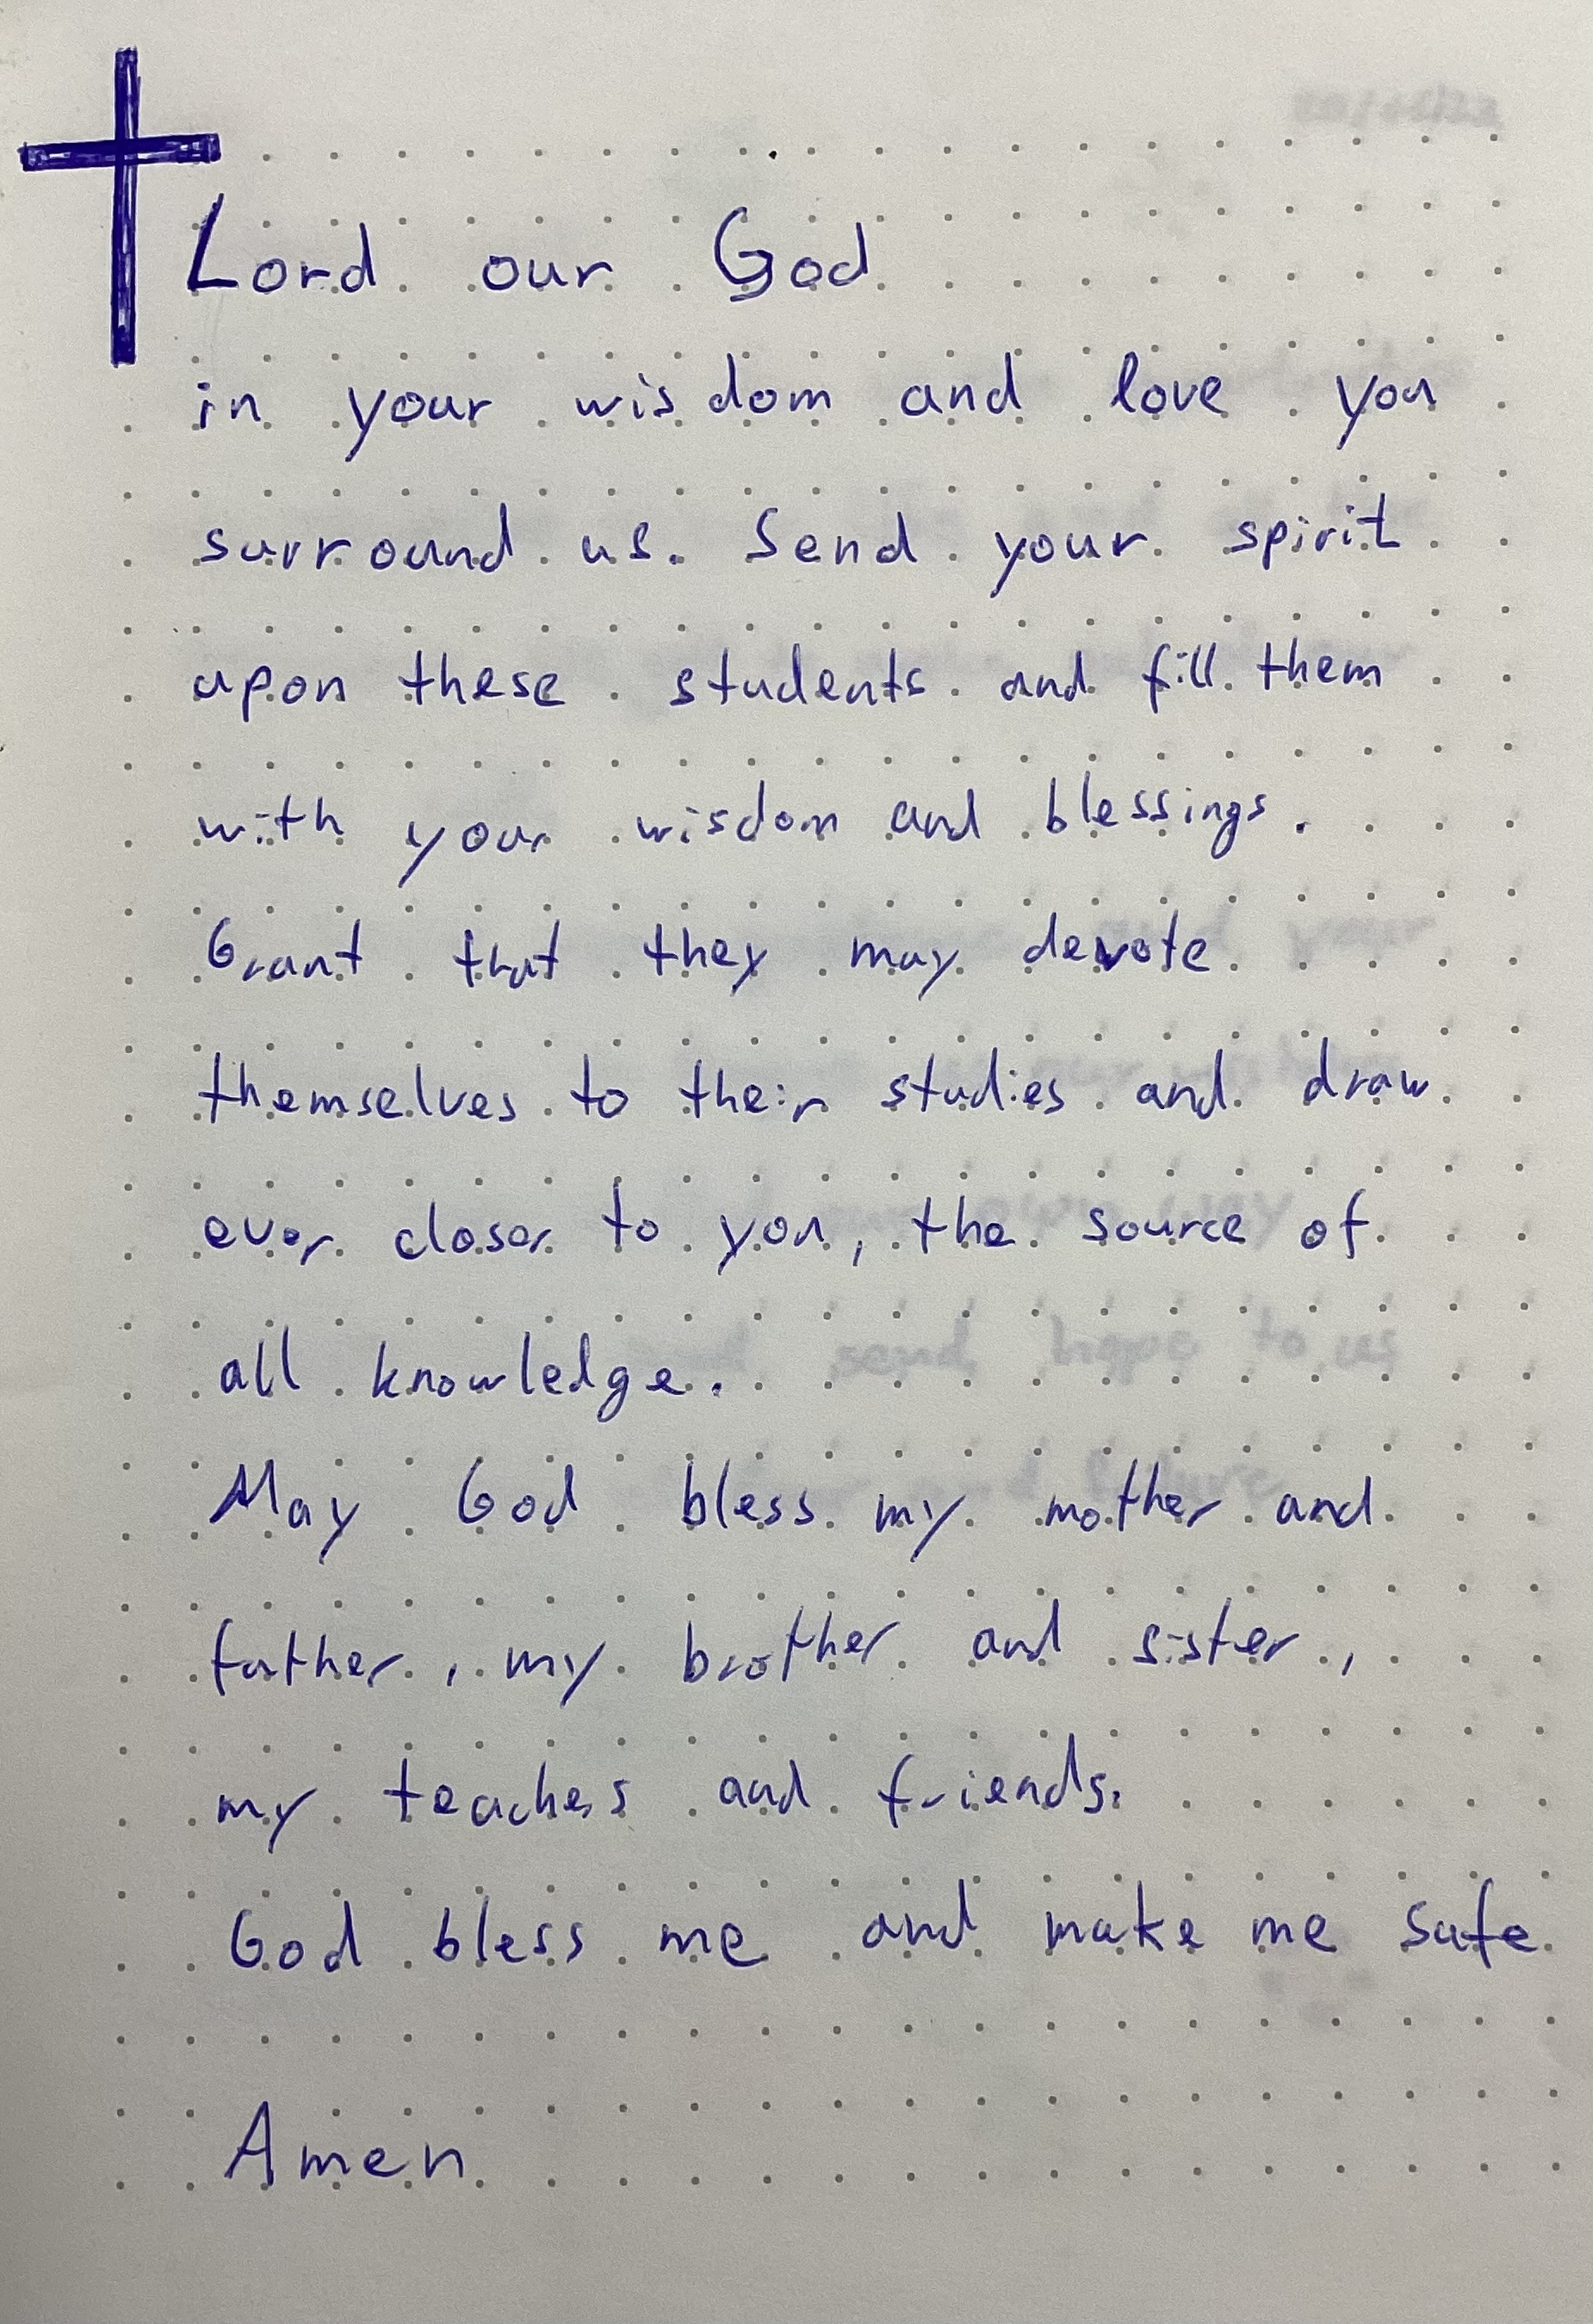 Lord our God
in your wisdom and love you
surround us. Send your spirit
upon these students and fill them
with your wisdom and blessings.
Grant that they may devote
themselves to their studies and draw
ever closer to you, the source of
all knowledge.
May God bless my mother and
father, my brother and sister,
my teachers and friends.
God bless me and make me safe
Amen